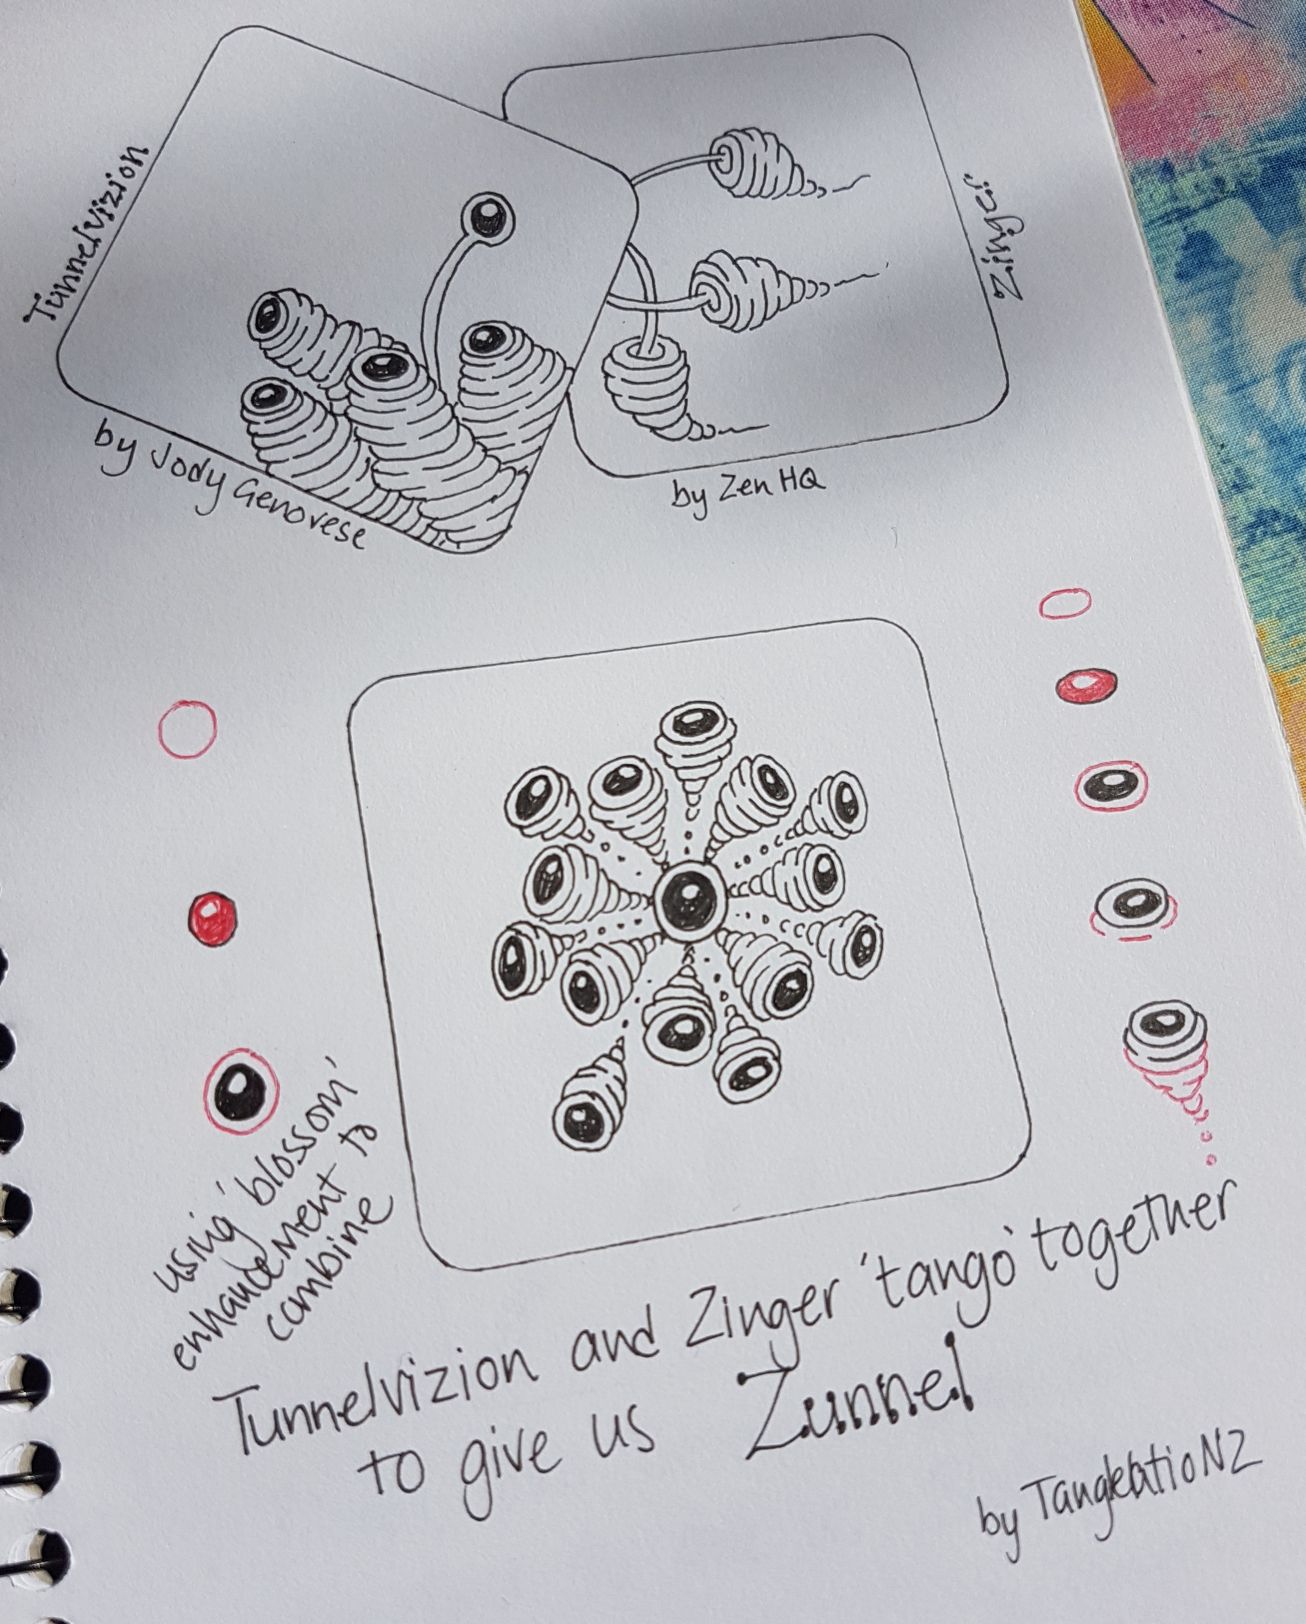 Tunnelvizion
by Jody Genovese
Zinger
by Zen HQ
using 'blossom'
enhancement to
combine
Tunnelvizion and Zinger 'tango' together
to give us Zunnel
by TangleatioNZ